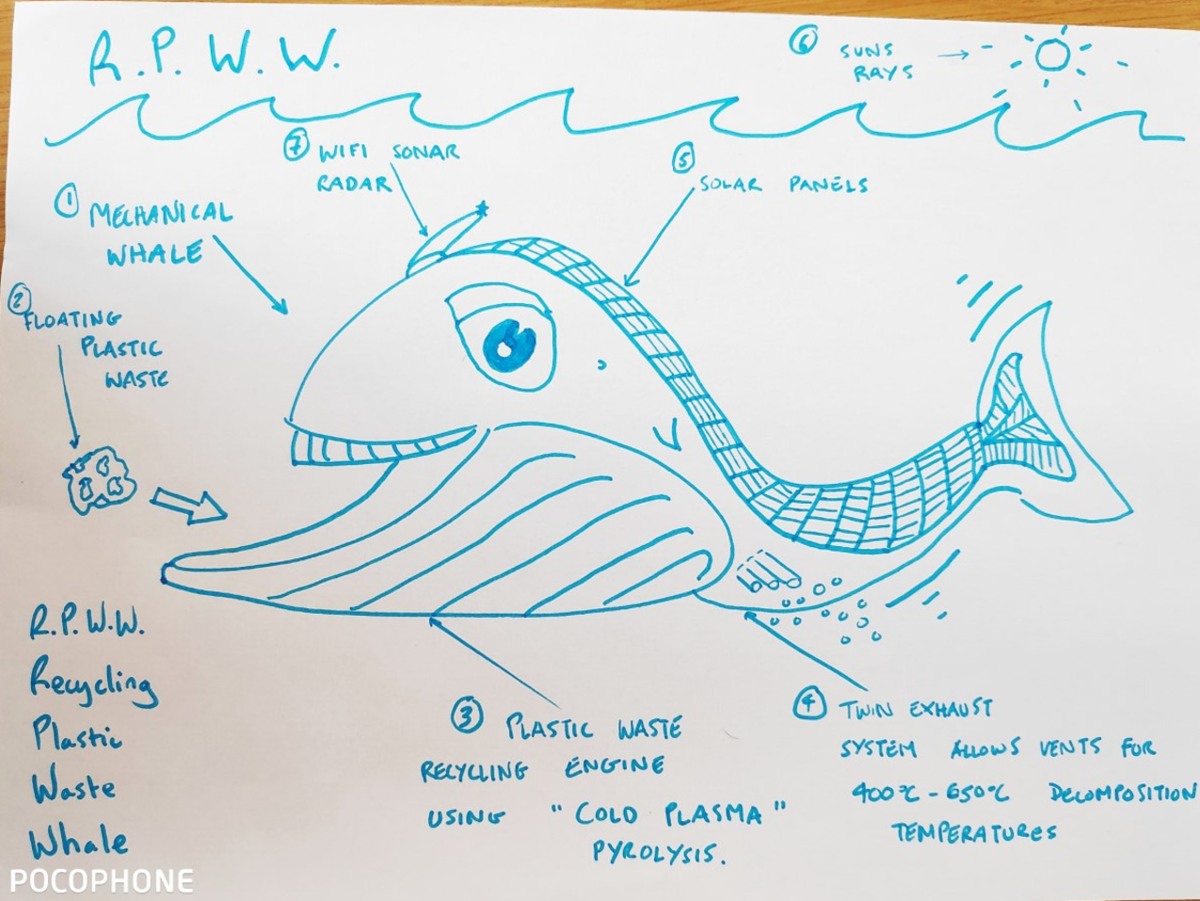 R.P.W.W.
⑥ SUNS
RAYS
⑦ WIFI SONAR
RADAR
⑤ SOLAR PANELS
① MECHANICAL
WHALE
② FLOATING
PLASTIC
WASTE
R.P.W.W.
Recycling
Plastic
Waste
Whale
③ PLASTIC WASTE
RECYCLING ENGINE
USING "COLD PLASMA"
PYROLYSIS.
④ TWIN EXHAUST
SYSTEM ALLOWS VENTS FOR
400°C - 650°C DECOMPOSITION
TEMPERATURES
POCOPHONE